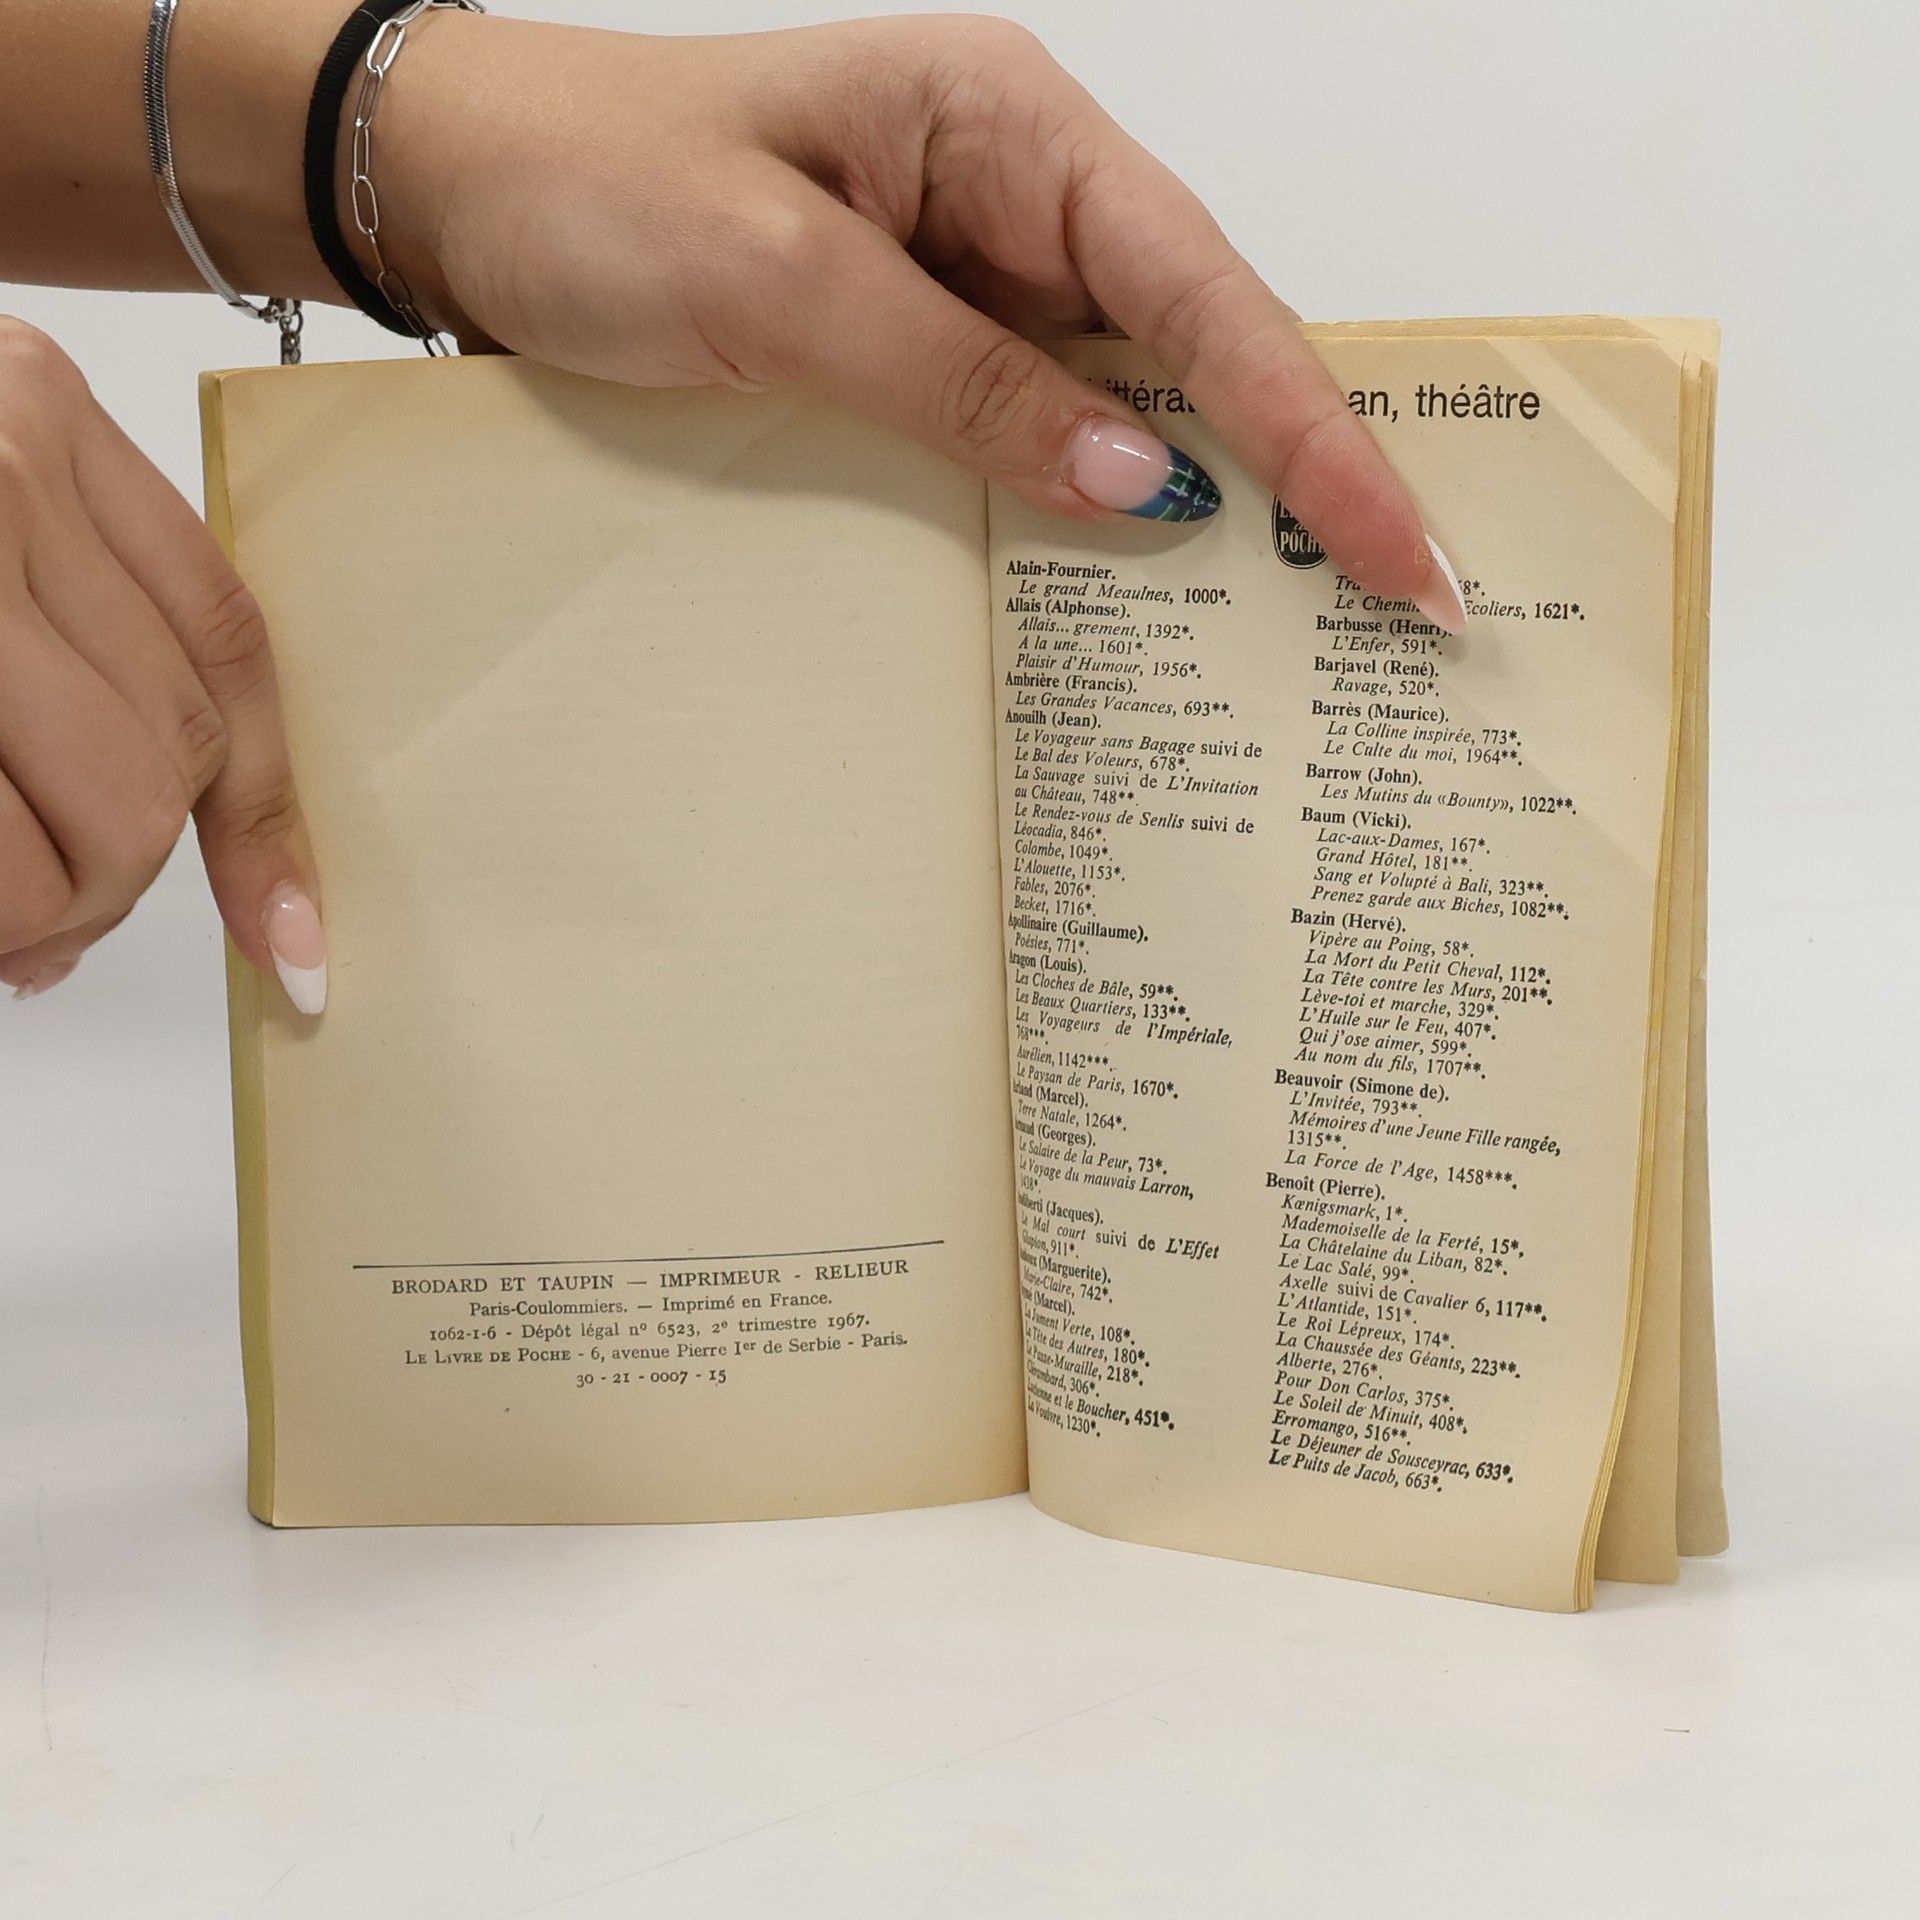 BRODARD ET TAUPIN — IMPRIMEUR - RELIEUR
Paris-Coulommiers. — Imprimé en France.
1062-1-6 - Dépôt légal nº 6523, 2e trimestre 1967.
LE LIVRE DE POCHE - 6, avenue Pierre Ier de Serbie - Paris.
30 - 21 - 0007 - 15
théâtre
POCHE
Alain-Fournier.
Le grand Meaulnes, 1000*.
Allais (Alphonse).
Allais... grement, 1392*.
A la une... 1601*.
Plaisir d'Humour, 1956*.
Ambrière (Francis).
Les Grandes Vacances, 693**.
Anouilh (Jean).
Le Voyageur sans Bagage suivi de
Le Bal des Voleurs, 678*.
La Sauvage suivi de L'Invitation
au Château, 748**.
Le Rendez-vous de Senlis suivi de
Léocadia, 846*.
Colombe, 1049*.
L'Alouette, 1153*.
Fables, 2076*.
Becket, 1716*.
Apollinaire (Guillaume).
Poésies, 771*.
Aragon (Louis).
Les Cloches de Bâle, 59**.
Les Beaux Quartiers, 133**.
Les Voyageurs de l'Impériale,
768***.
Aurélien, 1142***.
Le Paysan de Paris, 1670*.
(Marcel).
Terre Natale, 1264*.
(Georges).
Le Salaire de la Peur, 73*.
Le Voyage du mauvais Larron,
1438*.
(Jacques).
Le Mal court suivi de L'Effet
Glapion, 911*.
(Marguerite).
Marie-Claire, 742*.
(Marcel).
La Jument Verte, 108*.
La Tête des Autres, 180*.
Le Passe-Muraille, 218*.
Clérambard, 306*.
Lucienne et le Boucher, 451*.
La Vouivre, 1230*.
Le Ecoliers, 1621*.
Barbusse (Henri).
L'Enfer, 591*.
Barjavel (René).
Ravage, 520*.
Barrès (Maurice).
La Colline inspirée, 773*.
Le Culte du moi, 1964**.
Barrow (John).
Les Mutins du «Bounty», 1022**.
Baum (Vicki).
Lac-aux-Dames, 167*.
Grand Hôtel, 181**.
Sang et Volupté à Bali, 323**.
Prenez garde aux Biches, 1082**.
Bazin (Hervé).
Vipère au Poing, 58*.
La Mort du Petit Cheval, 112*.
La Tête contre les Murs, 201**.
Lève-toi et marche, 329*.
L'Huile sur le Feu, 407*.
Qui j'ose aimer, 599*.
Au nom du fils, 1707**.
Beauvoir (Simone de).
L'Invitée, 793**.
Mémoires d'une Jeune Fille rangée,
1315**.
La Force de l'Age, 1458***.
Benoît (Pierre).
Kœnigsmark, 1*.
Mademoiselle de la Ferté, 15*.
La Châtelaine du Liban, 82*.
Le Lac Salé, 99*.
Axelle suivi de Cavalier 6, 117**.
L'Atlantide, 151*.
Le Roi Lépreux, 174*.
La Chaussée des Géants, 223**.
Alberte, 276*.
Pour Don Carlos, 375*.
Le Soleil de Minuit, 408*.
Erromango, 516**.
Le Déjeuner de Sousceyrac, 633*.
Le Puits de Jacob, 663*.